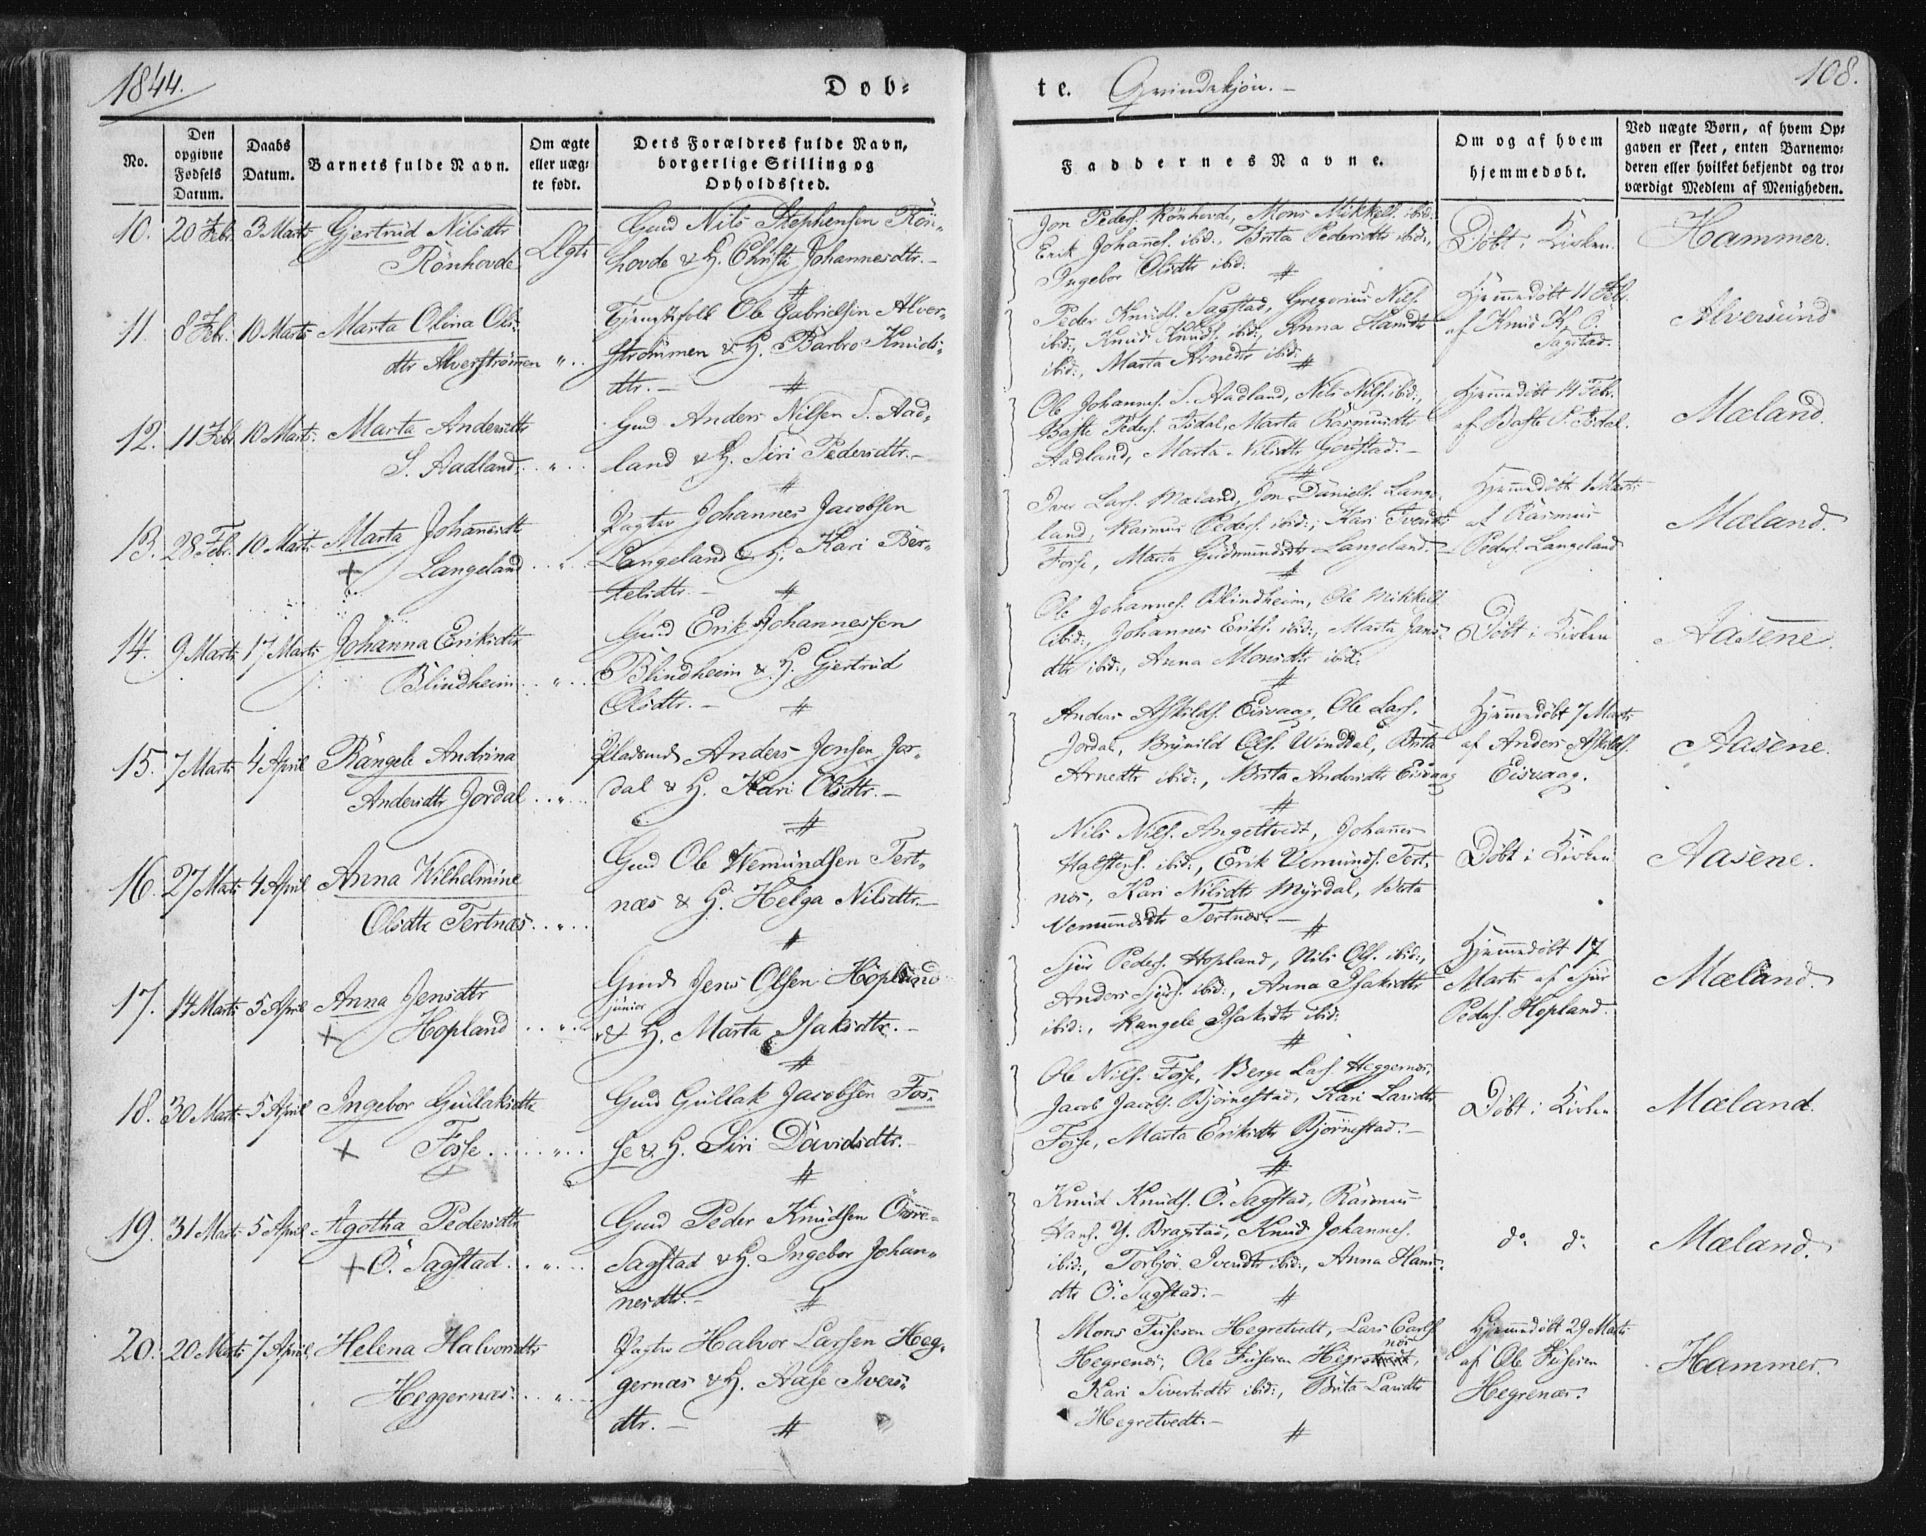 1844.
Døb-
te. Qvindekjøn.
108.
No.
Den opgivne Fødsels Datum.
Daabs Datum.
Barnets fulde Navn.
Om ægte eller uægte født.
Dets Forældres fulde Navn, borgerlige Stilling og Opholdssted.
Faddernes Navne.
Om og af hvem hjemmedøbt.
Ved uægte Børn, af hvem Opgaven er skeet, enten Barnemoderen eller hvilket bekjendt og troværdigt Medlem af Menigheden.
10. 20 Febr. 3 Marts Gjertrud Nilsdtr
Rönhovde Ægte
Gmd Nils Stephensen Rön-
hovde & H. Christi Johannesdtr.
Jon Peders. Rönhovde, Mons Mikkels. ibid.
Erik Johannes. ibid., Brita Pedersdtr ibid.,
Ingebor Olsdtr ibid.
Döbt i Kirken.
Hammer.
11. 8 Febr. 10 Marts Marta Olina Ols-
dtr Alverströmen
Tjenestfolk Ole Gabrielsen Alver-
strömmen & H. Barbro Knuds-
dtr.
Peder Knuds. Sagstad, Gregorius Nils.
ibid., Knud Knuds. ibid., Anna Hansdtr
ibid., Marta Arnedtr ibid.
Hjemmedöbt 11 Febr.
af Knud K. Ö.
Sagstad.
Alversund
12. 11 Febr. 10 Marts Marta Andersdtr
S. Aadland
Gmd Anders Nilsen S. Aad-
land & H. Siri Pedersdtr.
Ole Johannes. S. Aadland, Nils Nils. ibid.,
Baste Peders. Isdal, Marta Rasmusdtr
Aadland, Marta Nilsdtr
Hjemmedöbt 14 Febr.
af Baste P. Isdal.
Mæland.
13. 28 Febr. 10 Marts Marta Johannesdtr
Langeland
Pagter Johannes Jacobsen
Langeland & H. Kari Ber-
telsdtr.
Iver Lars. Mæland, Jon Daniels. Lange-
land, Rasmus Peders. ibid., Kari Iversdtr
Fosse, Marta Gudmundsdtr Langeland.
Hjemmedöbt 1 Marts
af Rasmus
Peders. Langeland
Mæland.
14. 9 Marts 17 Marts Johanna Eriksdtr
Blindheim
Gmd Erik Johannessen
Blindheim & H. Gjertrud
Olsdtr.
Ole Johannes. Blindheim, Ole Mikkels.
ibid., Johannes Eriks. ibid., Marta Jans-
dtr ibid., Anna Monsdtr ibid.
Döbt i Kirken
Aasene.
15. 7 Marts 4 April Rangele Andrina
Andersdtr Jordal
Pladsmd Anders Jonsen Jor-
dal & H. Kari Olsdtr.
Anders Askilds. Eisvaag, Ole Lars.
Jordal, Brynild Ols. Winddal, Brita
Arnedtr ibid., Brita Andersdtr Eisvaag
Hjemmedöbt 7 Marts
af Anders Askilds.
Eisvaag.
Aasene.
16. 27 Marts 4 April Anna Wilhelmine
Olsdtr Tertnæs
Gmd Ole Wemundsen Tert-
næs & H. Helga Nilsdtr.
Nils Nils. Angeltvedt, Johannes
Halstens. ibid., Erik Vemunds. Tert-
næs, Kari Nilsdtr Myrdal, Brita
Vemundsdtr Tertnæs.
Döbt i Kirken
Aasene.
17. 14 Marts 5 April Anna Jensdtr
Hopland
Gmd Jens Olsen Hopland
junior
& H. Marta Isaksdtr.
Sjur Peders. Hopland, Nils Ols. ibid.,
Anders Sjurs. ibid., Anna Isaksdtr
ibid., Rangele Isaksdtr ibid.
Hjemmedöbt 17
Marts af Sjur
Peders. Hopland.
Mæland.
18. 30 Marts 5 April Ingebor Gullaksdtr
Fosse
Gmd Gullak Jacobsen Fos-
se & H. Siri Davidsdtr.
Ole Nils. Fosse, Berge Lars. Heggernæs,
Jacob Jacobs. Björnestad, Kari Larsdtr
Fosse, Marta Eriksdtr Björnestad.
Döbt i Kirken
Mæland.
19. 31 Marts 5 April Agotha Pedersdtr
Ö. Sagstad
Gmd Peder Knudsen Övre-
Sagstad & H. Ingebor Johan-
nesdtr.
Knud Knuds. Ö. Sagstad, Rasmus
Hans. Y. Bragstad, Knud Johannes.
ibid., Torbjör Iversdtr ibid., Anna Hans-
dtr Ö. Sagstad.
do do
Mæland.
20. 20 Marts 7 April Helena Halvorsdtr
Heggernæs
Pagter Halvor Larsen Heg-
gernæs & H. Aase Ivers-
dtr.
Mons Hegretvedt, Lars Carls.
Hegrenæs, Ole Hegrenæs,
Kari Sivertsdtr ibid., Brita Larsdtr
Hegretvedt.
Hjemmedöbt 29 Marts
af Ole
Hegrenæs.
Hammer.